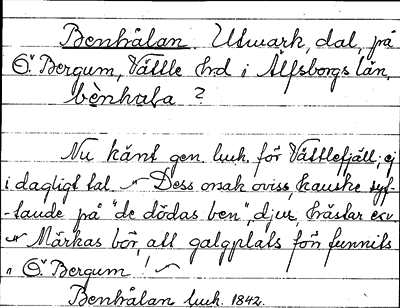 Benhålan, Utmark, dal, på
Ö. Bergum, Vättle hrd i Älfsborgs län,
bènhåla ?
Nu känt gen. luk. för Vättlefjäll; ej
i dagligt tal. — Dess orsak oviss, kanske syf-
-tande på "de dödas ben", djur, hästar ex.
— Märkas bör, att galgplats förr funnits
i Ö. Bergum ! —
Benhålan luk. 1842.